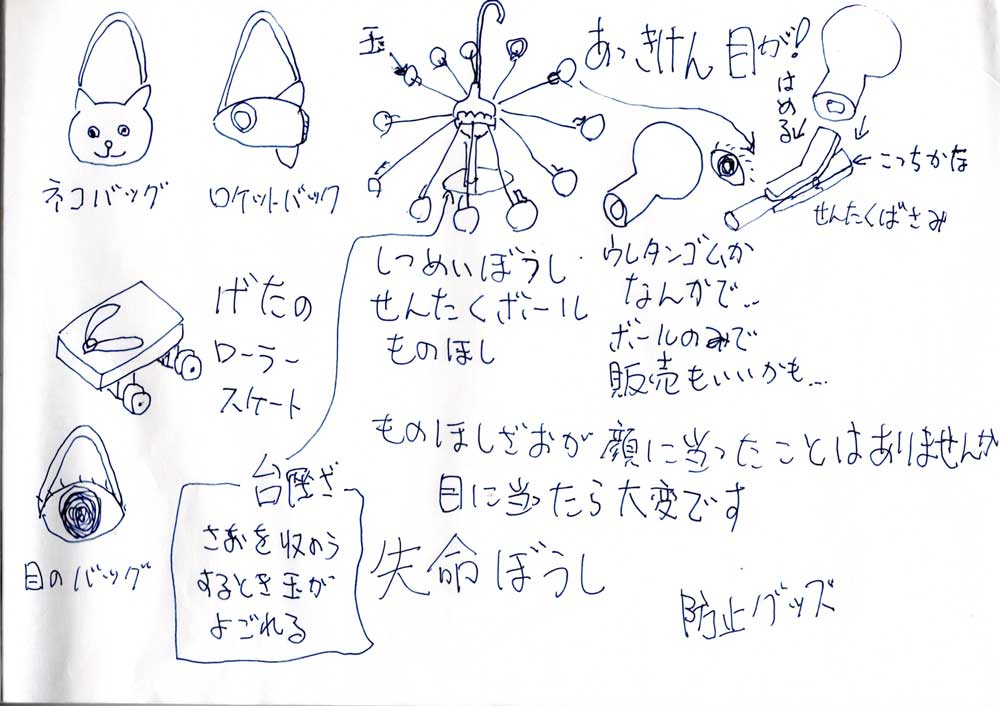 玉
あっきけん 目が!
はめる
こっちかな
せんたくばさみ
ネコバッグ
ロケットバック
しつめいぼうし
せんたくボール
ものほし
ウレタンゴムか
なんかで…
ボールのみで
販売もいいかも…
げたの
ローラー
スケート
ものほしざおが顔に当ったことはありませんか
目に当ったら大変です
台座ぎ
さおを収のう
するとき玉が
よごれる
目のバッグ
失命ぼうし
防止グッズ